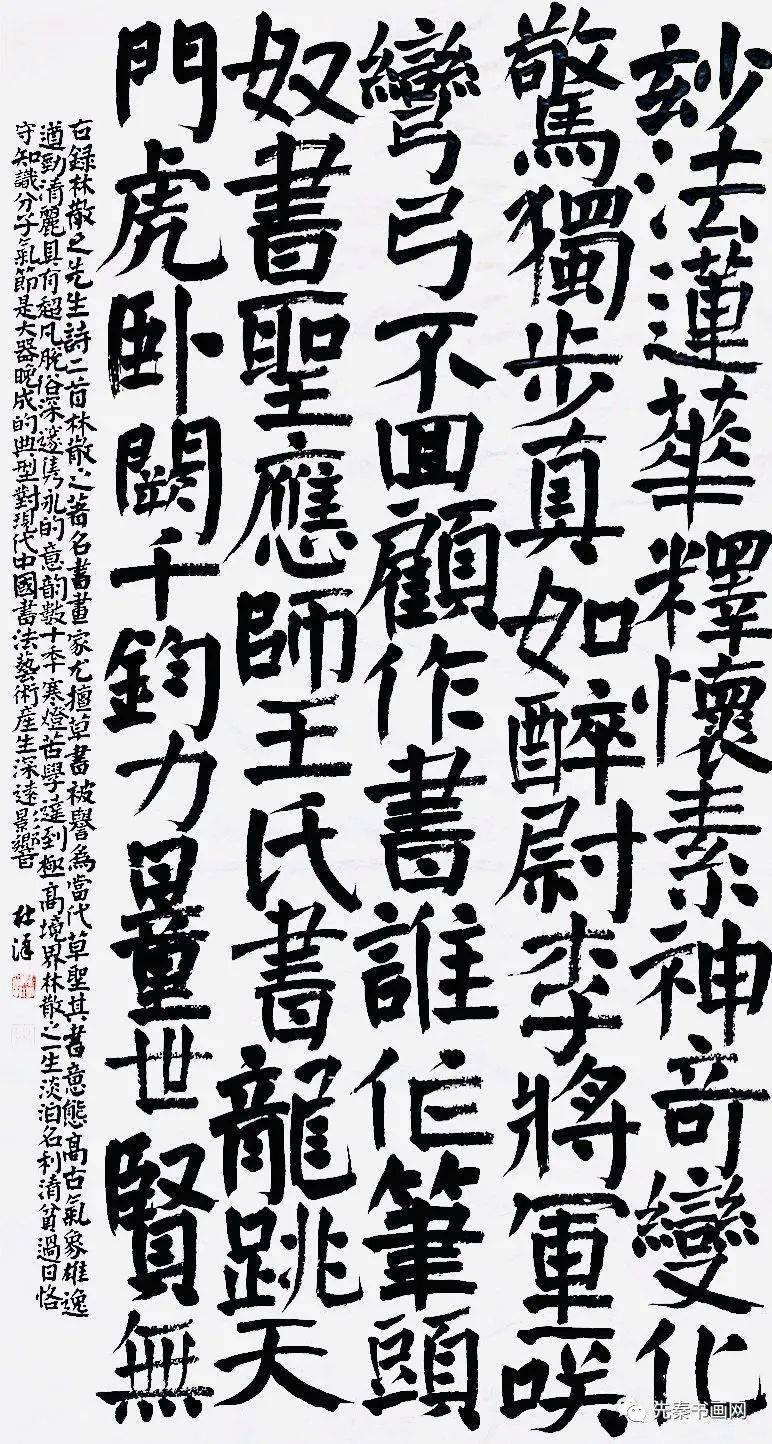 玅法蓮華釋懷素神奇變化
驚獨步真如醉尉李將軍咲
彎弓不回顧作書誰作筆頭
奴書聖應師王氏書龍跳天
門虎卧闕千鈞力量世賢無
右録林散之先生詩二首林散之著名書畫家尤擅草書被譽為當代草聖其書意態高古氣象雄逸
遒勁清麗具有超凡脫俗深邃雋永的意韵數十年寒燈苦學達到極高境界林散之一生淡泊名利清貧過日恪
守知識分子氣節是大器晚成的典型對現代中國書法藝術産生深遠影響
先秦书画网